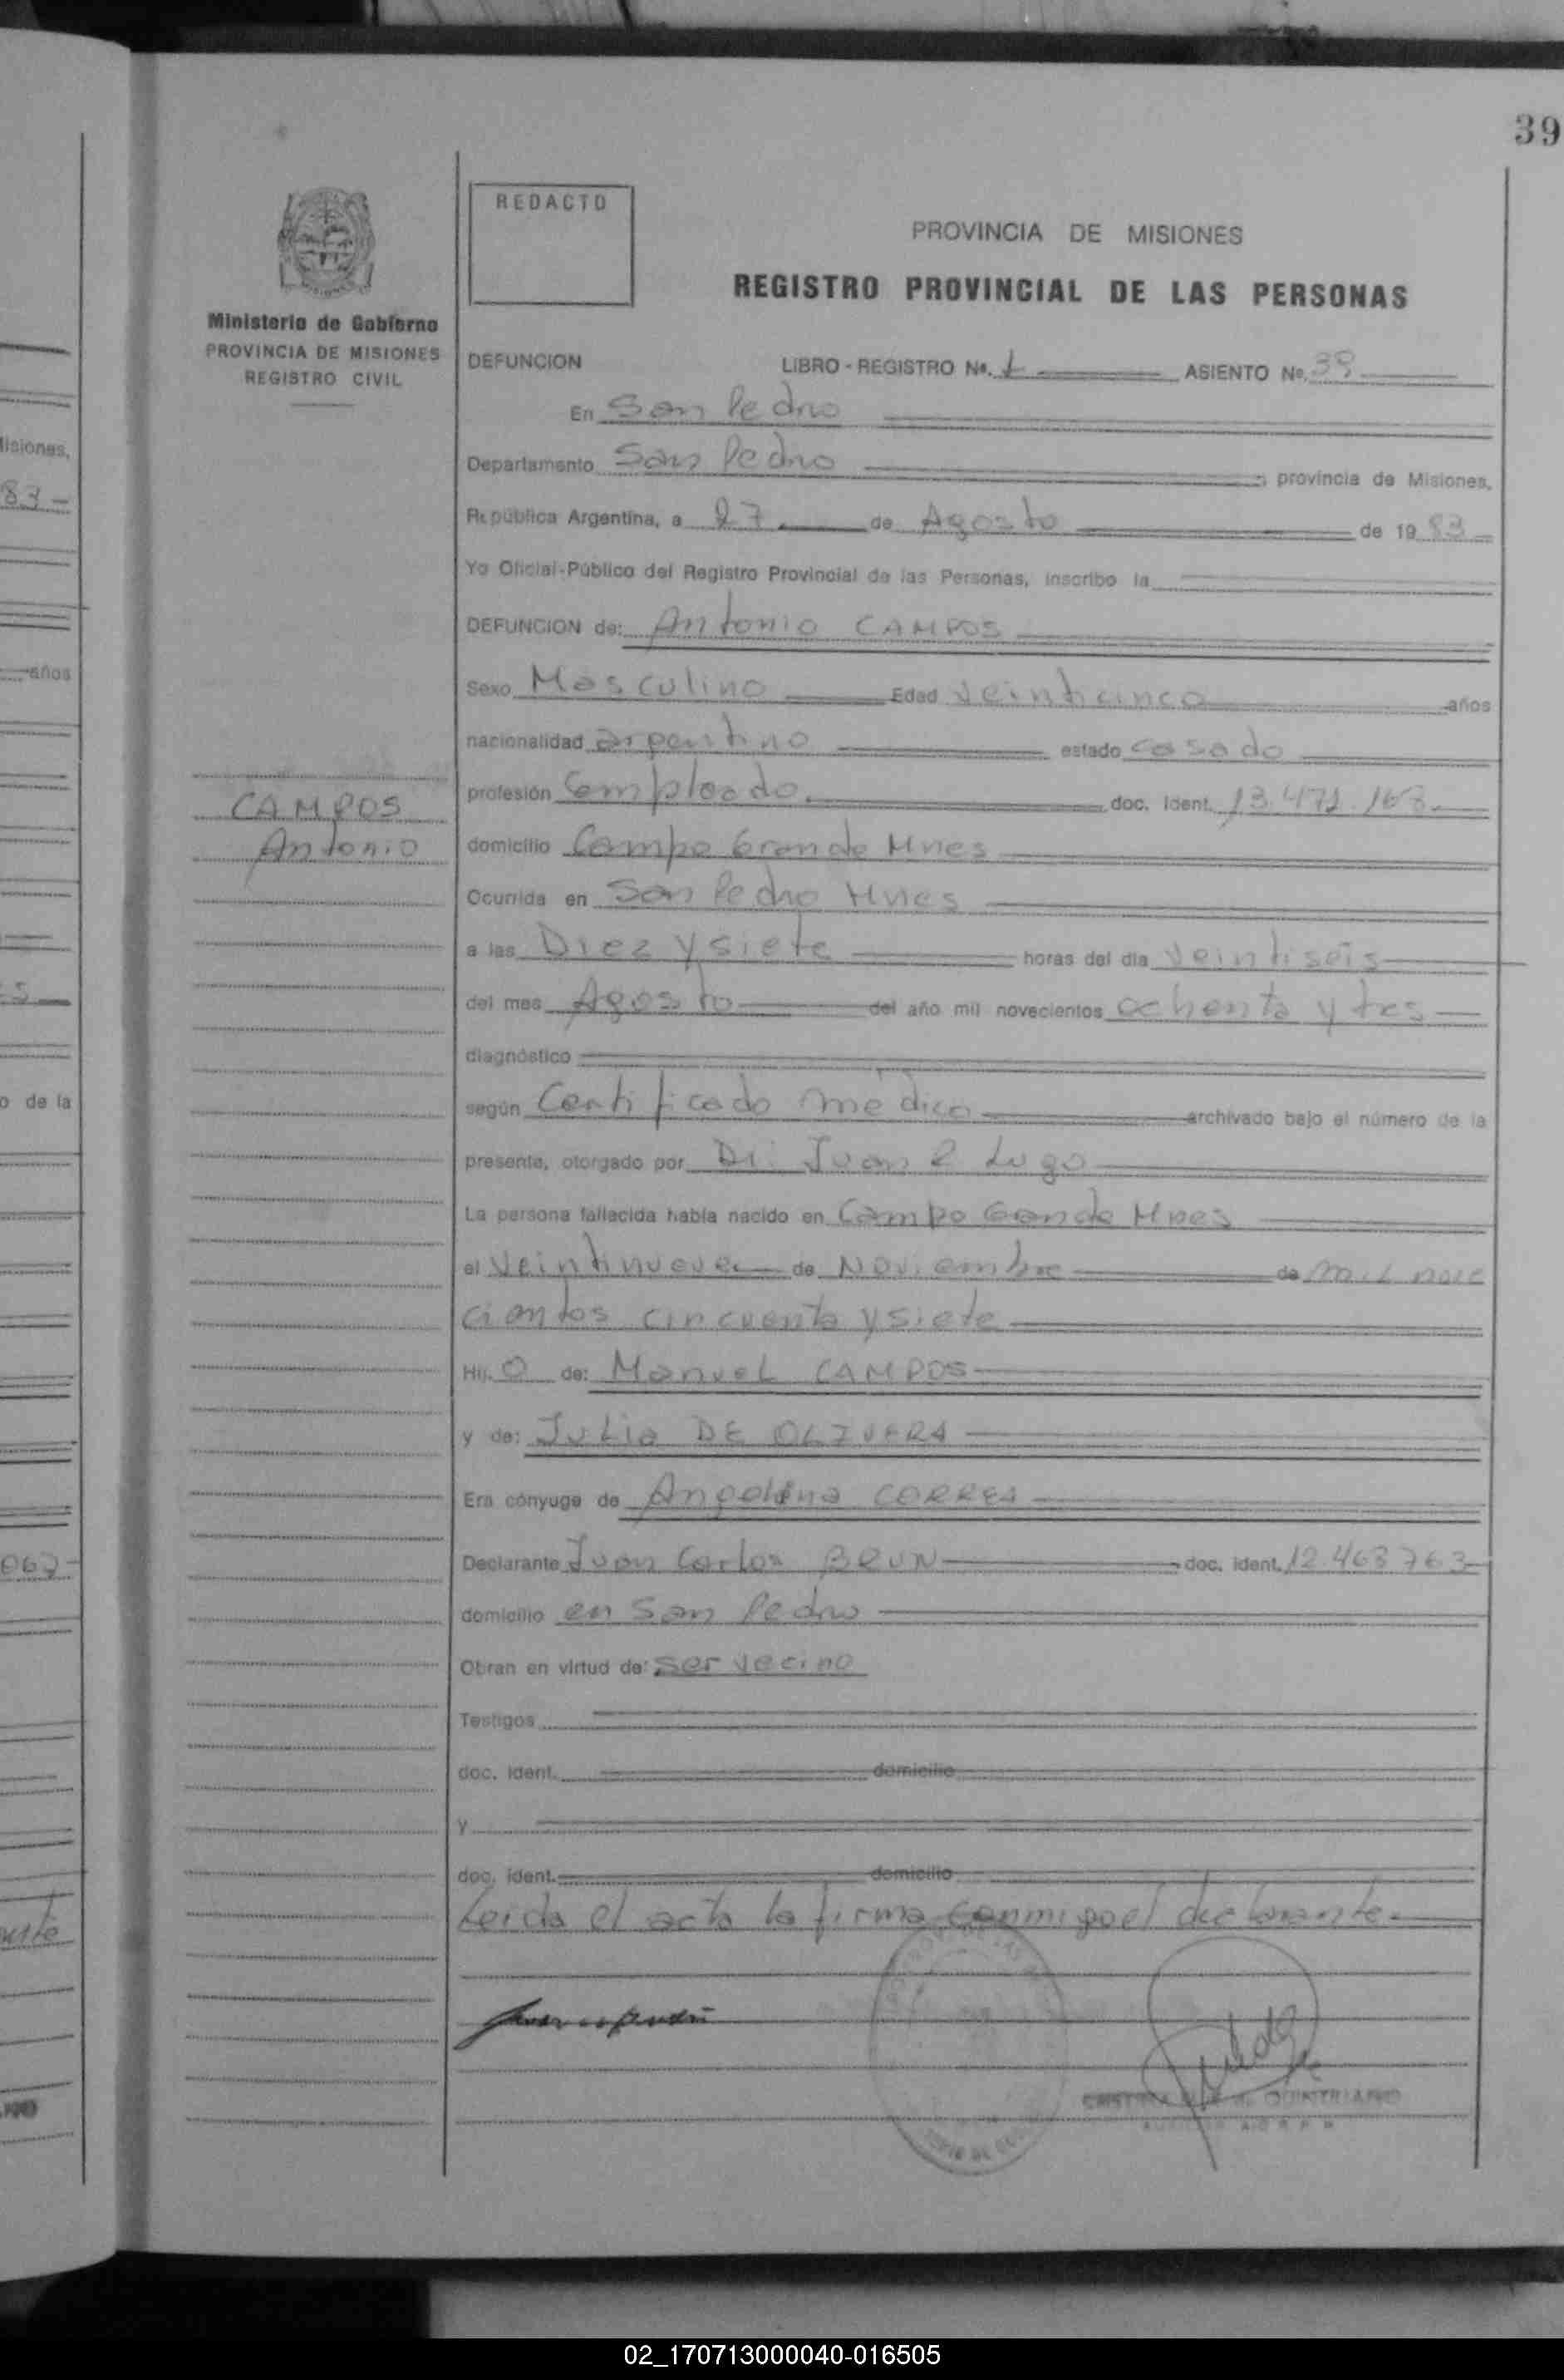 39
REDACTO
PROVINCIA DE MISIONES
REGISTRO PROVINCIAL DE LAS PERSONAS
Ministerio de Gobierno
PROVINCIA DE MISIONES
REGISTRO CIVIL
DEFUNCION LIBRO - REGISTRO No. 1 ASIENTO No. 39
En San Pedro
Departamento San Pedro provincia de Misiones,
República Argentina, a 27 de Agosto de 1983
Yo Oficial-Público del Registro Provincial de las Personas, inscribo la
DEFUNCION de: Antonio CAMPOS
Sexo Masculino Edad Veinticinco años
nacionalidad argentino estado casado
profesión Empleado doc. ident. 13.471.163
CAMPOS
Antonio
domicilio Campo Grande Mnes
Ocurrida en San Pedro Mnes
a las Diez y siete horas del día Veintiseis
del mes Agosto del año mil novecientos ochenta y tres
diagnóstico
según Certificado médico archivado bajo el número de la
presente, otorgado por Dr. Juan R Lugo
La persona fallecida había nacido en Campo Grande Mnes
el Veintinueve de Noviembre de mil nove
cientos cincuenta y siete
Hij o de: Manuel CAMPOS
y de: Julia DE OLIVERA
Era cónyuge de Angelina CORREA
Declarante Juan Carlos BRUN doc. ident. 12.463763
domicilio en San Pedro
Obran en virtud de: ser vecino
Testigos
doc. ident. domicilio
y
doc. ident. domicilio
Leida el acta la firma conmigo el declarante.
isiones,
83
años
o de la
063
02_170713000040-016505